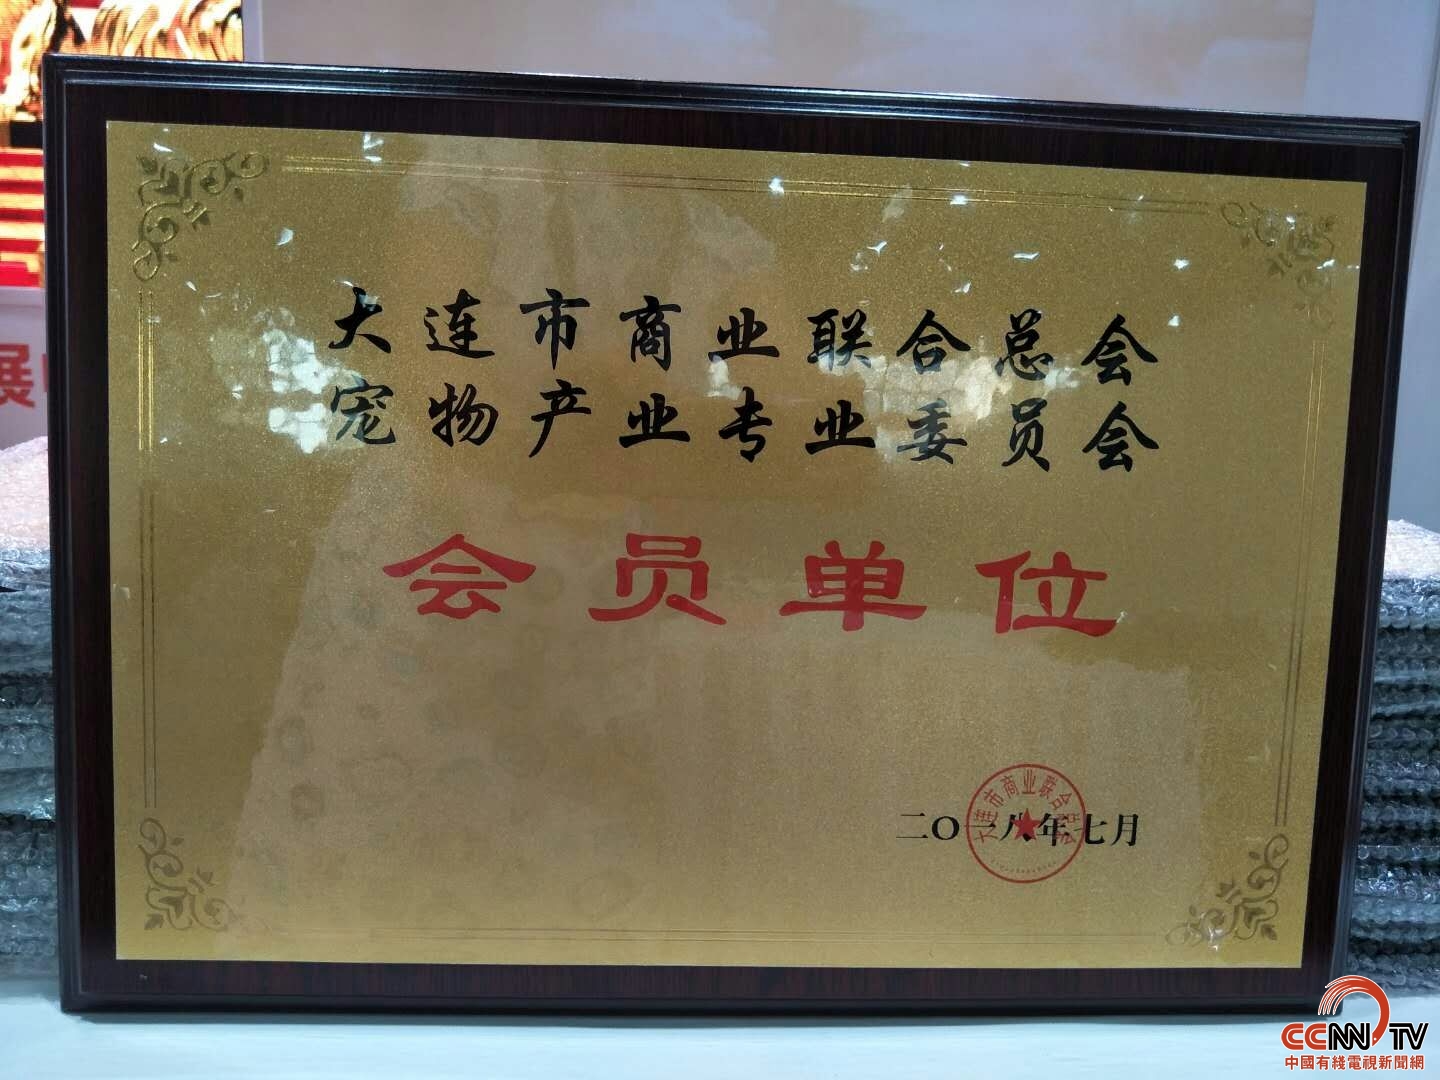 大连市商业联合总会
宠物产业专业委员会
会员单位
二〇一八年七月
大连市商业联合总会
展
CCNNTV
中國有綫電視新聞網